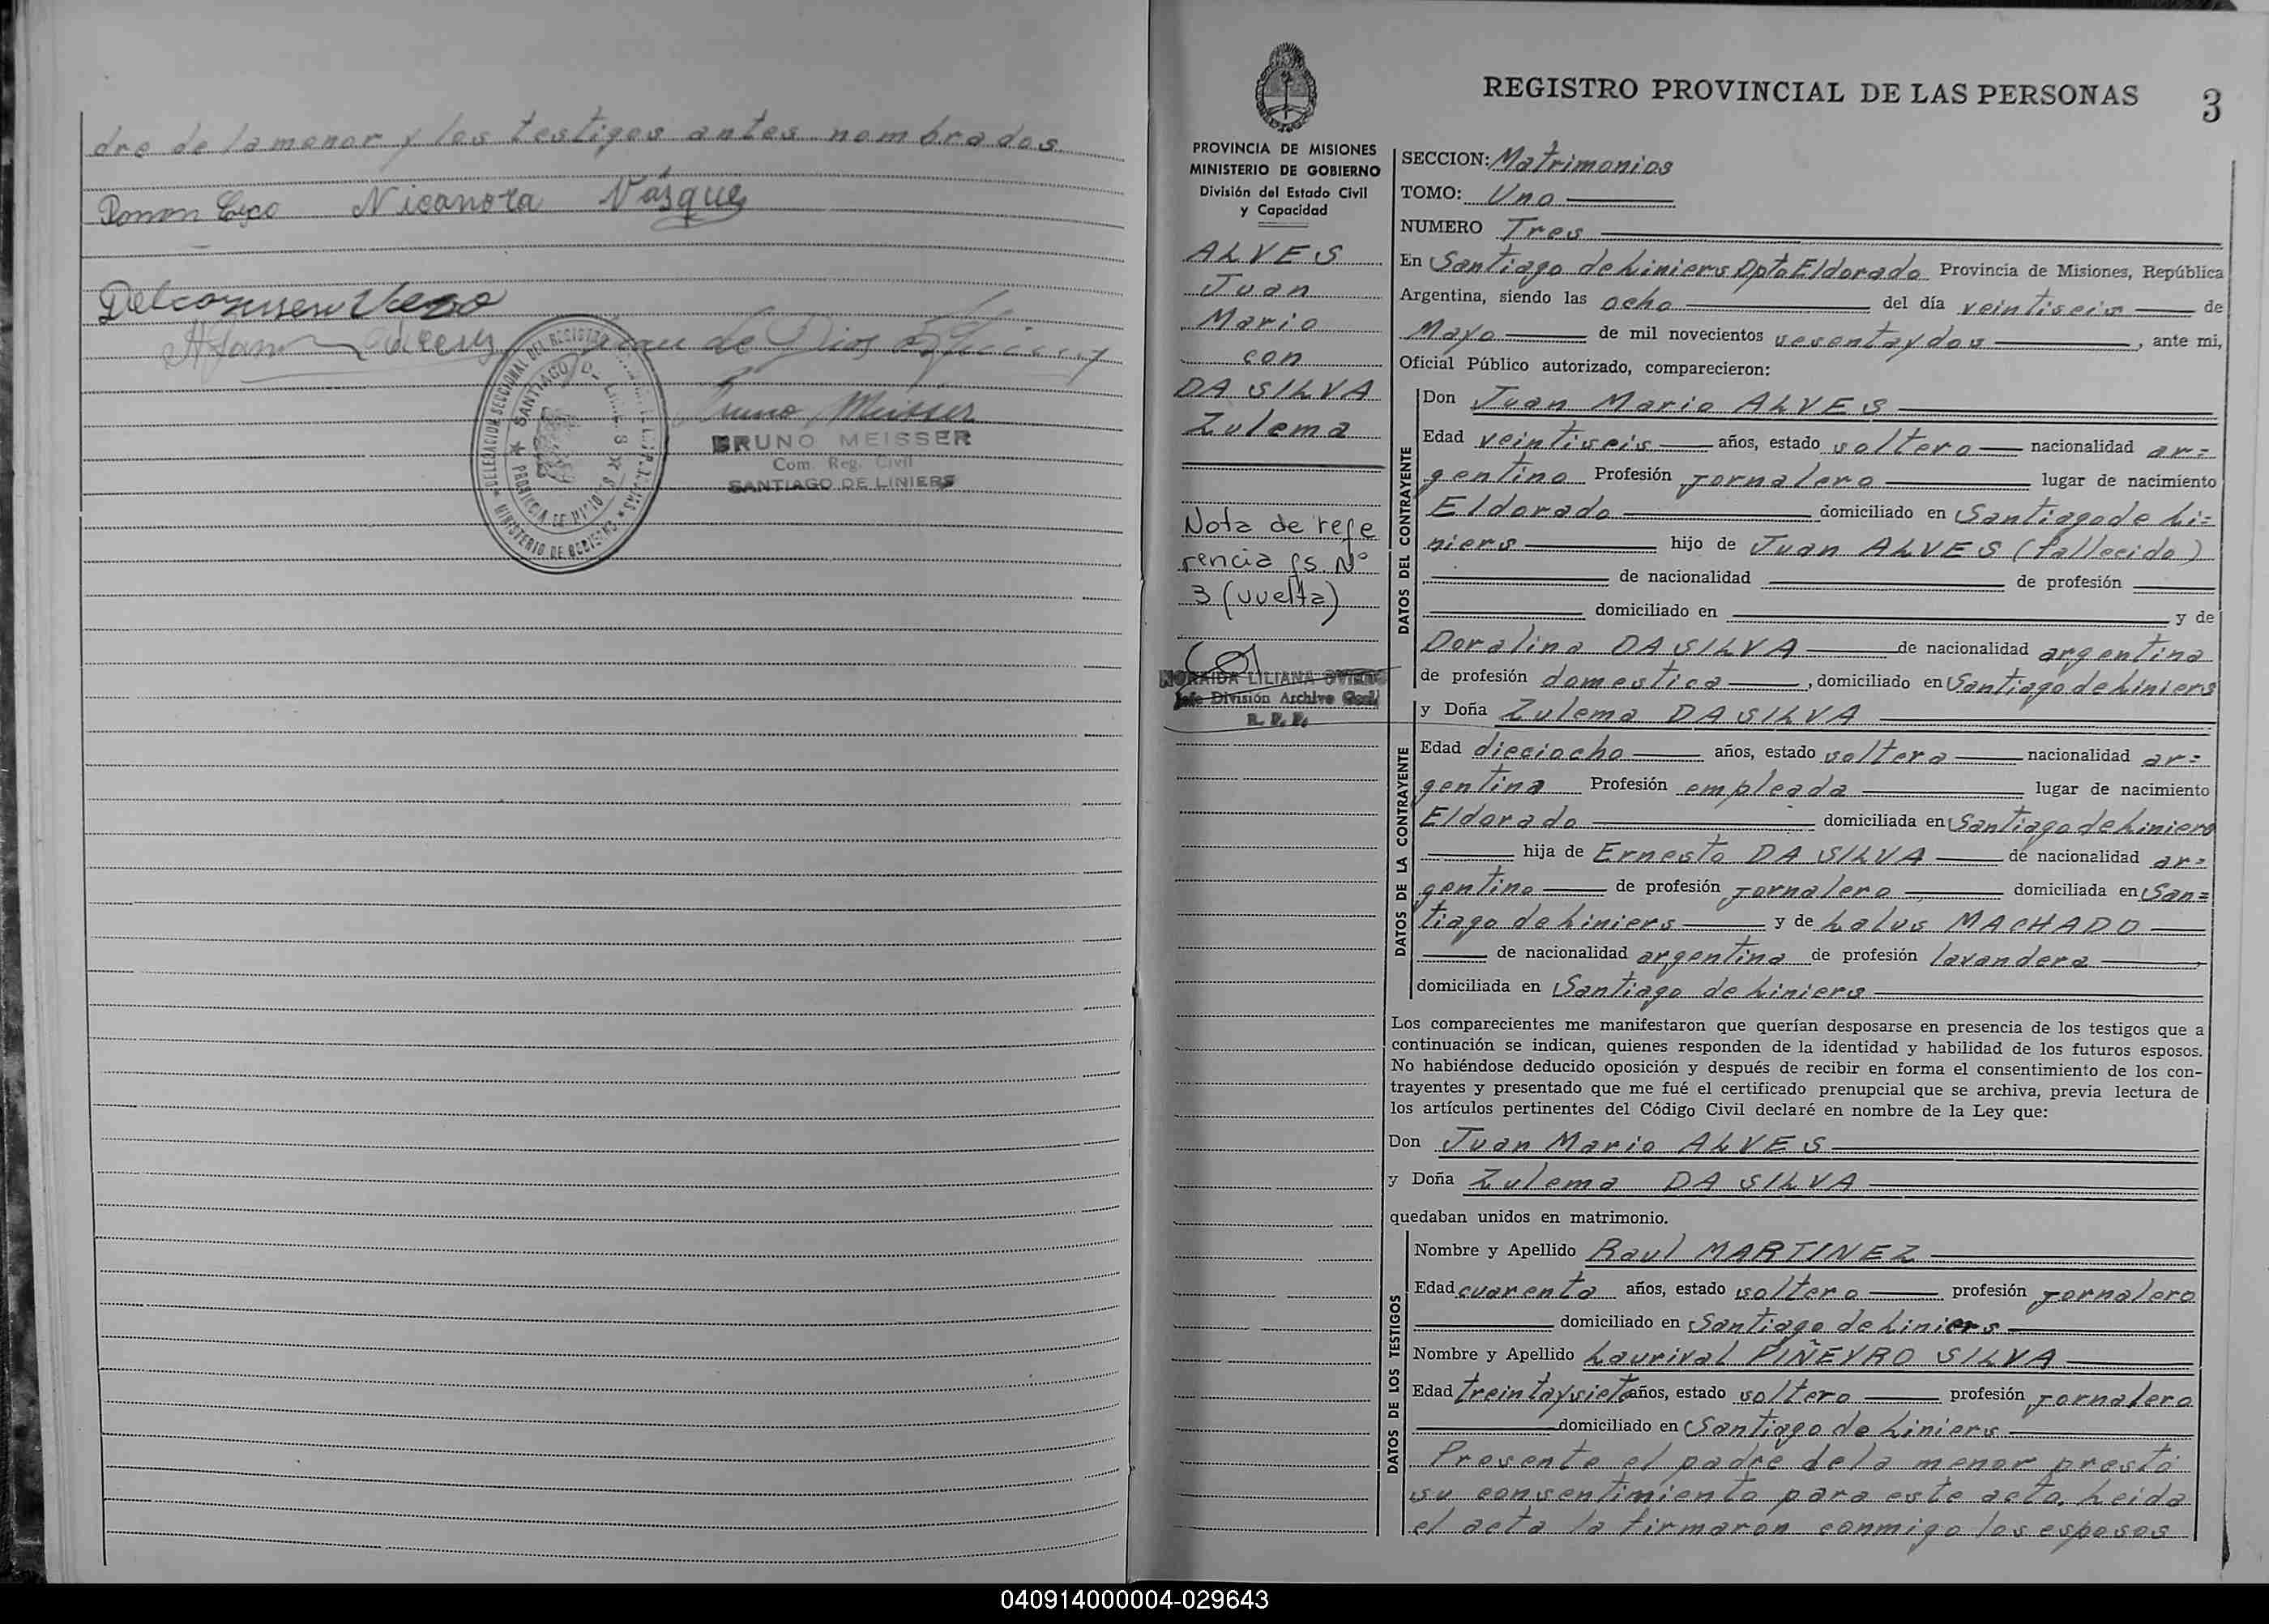 dre de la menor y los testigos antes nombrados.
Nicanora Vásquez
BRUNO MEISSER
Com. Reg. Civil
SANTIAGO DE LINIERS
REGISTRO PROVINCIAL DE LAS PERSONAS
3
PROVINCIA DE MISIONES
MINISTERIO DE GOBIERNO
División del Estado Civil
y Capacidad
ALVES
Juan
Mario
con
DA SILVA
Zulema
Nota de refe
rencia fs. Nº
3 (vuelta)
LILIANA
Jefe División Archivo Gral
R. P. P.
SECCION: Matrimonios
TOMO: Uno
NUMERO Tres
En Santiago de Liniers Dpto Eldorado Provincia de Misiones, República
Argentina, siendo las ocho del día veintiseis de
Mayo de mil novecientos sesentaydos, ante mi,
Oficial Público autorizado, comparecieron:
DATOS DEL CONTRAYENTE
Don Juan Mario ALVES
Edad veintiseis años, estado soltero nacionalidad ar=
gentino Profesión jornalero lugar de nacimiento
Eldorado domiciliado en Santiago de Li=
niers hijo de Juan ALVES (fallecido)
de nacionalidad de profesión
domiciliado en y de
Doralina DA SILVA de nacionalidad argentina
de profesión domestica, domiciliado en Santiago de Liniers
DATOS DE LA CONTRAYENTE
y Doña Zulema DA SILVA
Edad dieciocho años, estado soltera nacionalidad ar=
gentina Profesión empleada lugar de nacimiento
Eldorado domiciliada en Santiago de Liniers
hija de Ernesto DA SILVA de nacionalidad ar=
gentino de profesión jornalero domiciliada en San=
tiago de Liniers y de Lalus MACHADO
de nacionalidad argentina de profesión lavandera,
domiciliada en Santiago de Liniers
Los comparecientes me manifestaron que querían desposarse en presencia de los testigos que a
continuación se indican, quienes responden de la identidad y habilidad de los futuros esposos.
No habiéndose deducido oposición y después de recibir en forma el consentimiento de los con-
trayentes y presentado que me fué el certificado prenupcial que se archiva, previa lectura de
los artículos pertinentes del Código Civil declaré en nombre de la Ley que:
Don Juan Mario ALVES
y Doña Zulema DA SILVA
quedaban unidos en matrimonio.
DATOS DE LOS TESTIGOS
Nombre y Apellido Raul MARTINEZ
Edad cuarenta años, estado soltero profesión jornalero
domiciliado en Santiago de Liniers
Nombre y Apellido Laurival PIÑEYRO SILVA
Edad treintaysiete años, estado soltero profesión jornalero
domiciliado en Santiago de Liniers
Presente el padre de la menor prestó
su consentimiento para este acto. Leida
el acta la firmaron conmigo los esposos
040914000004-029643